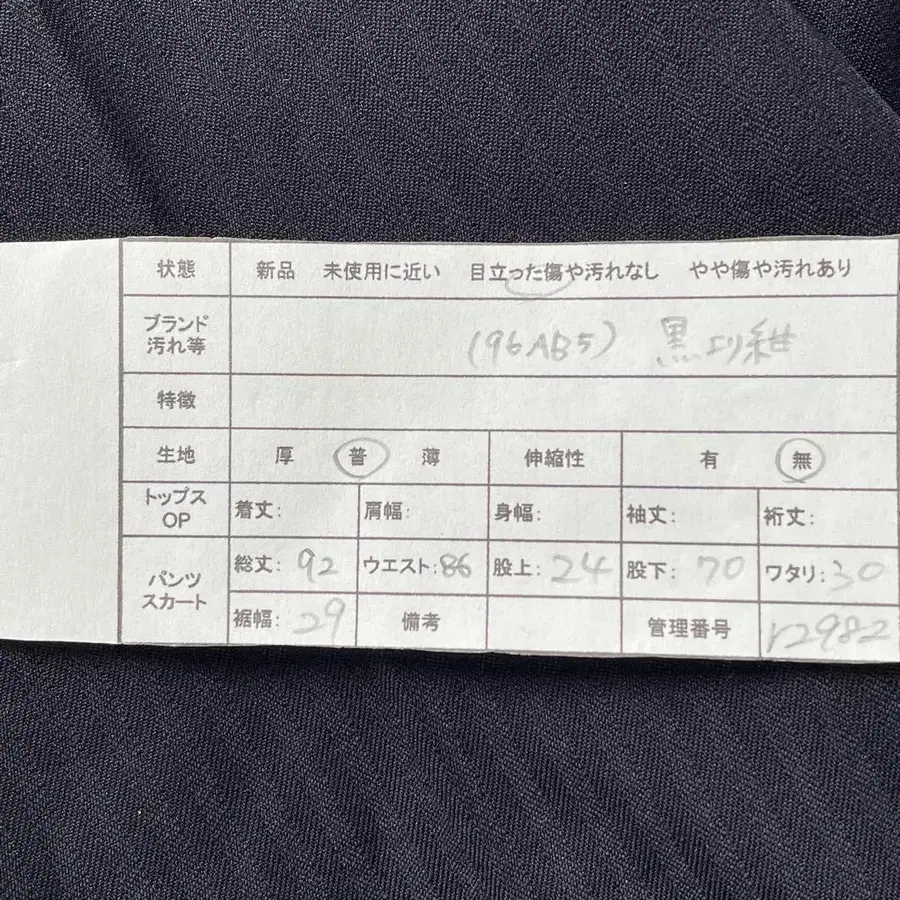 状態 新品 未使用に近い 目立った傷や汚れなし やや傷や汚れあり
ブランド
汚れ等 (96AB5) 黒より紺
特徴
生地 厚 普 薄 伸縮性 有 無
トップス
OP 着丈: 肩幅: 身幅: 袖丈: 裄丈:
パンツ
スカート 総丈: 92 ウエスト: 86 股上: 24 股下: 70 ワタリ: 30
裾幅: 29 備考 管理番号 r2982